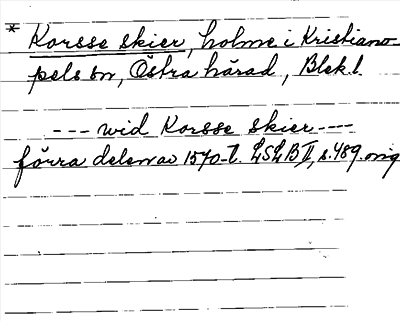 * Korsse skier, holme i Kristiano-
pels sn, Östra härad, Blek.l.
--- wid Korsse skier ---
förra delen av 1570-t. LSLB II, s. 489. orig